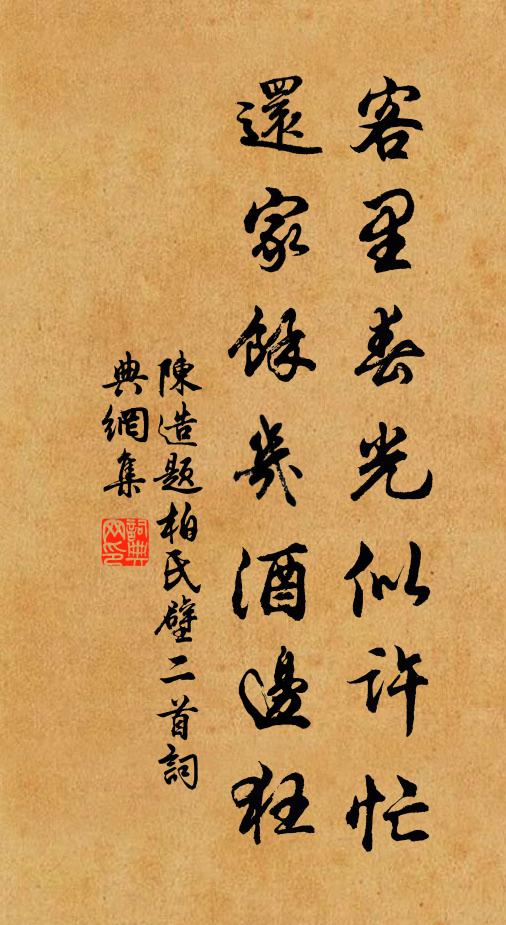 客里春光似许忙
還家餘幾酒邊狂
陳造題柏氏壁二首詞
典網集
詞典網印